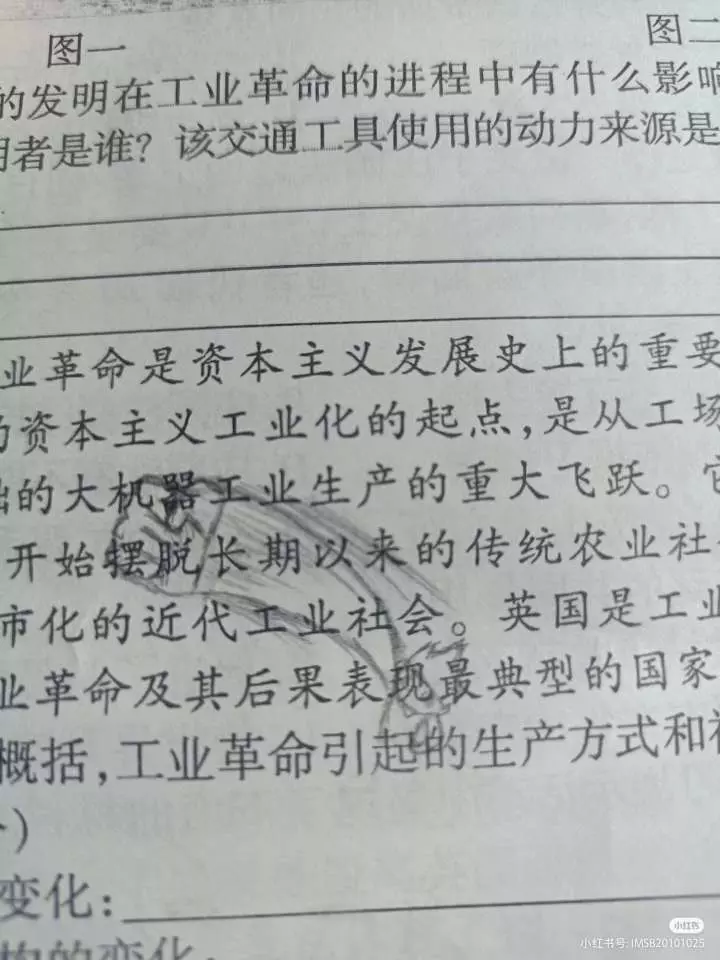 图一
图二
的发明在工业革命的进程中有什么影响
明者是谁?该交通工具使用的动力来源是
业革命是资本主义发展史上的重要
的资本主义工业化的起点,是从工场
础的大机器工业生产的重大飞跃。它
开始摆脱长期以来的传统农业社
市化的近代工业社会。英国是工业
业革命及其后果表现最典型的国家
概括,工业革命引起的生产方式和
)
变化:
构的变化:
小红书
小红书号: IMSB20101025